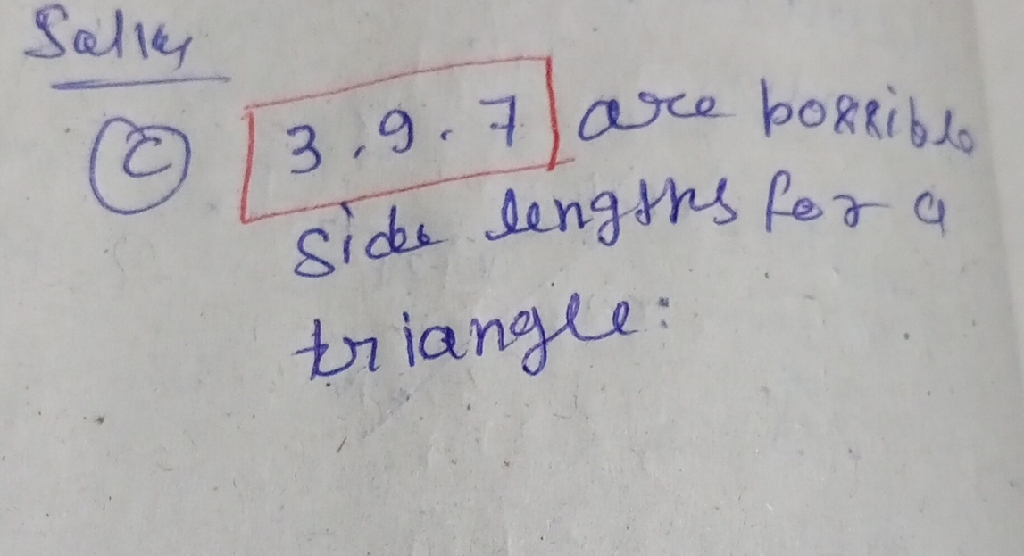 Sally
(C) 3, 9. 7 are possible
side lengths for a
triangle: